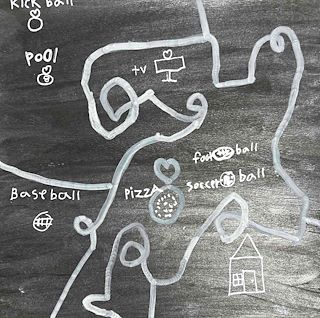 kick ball
POOl
tv
foot ball
soccer ball
PizzA
Base ball